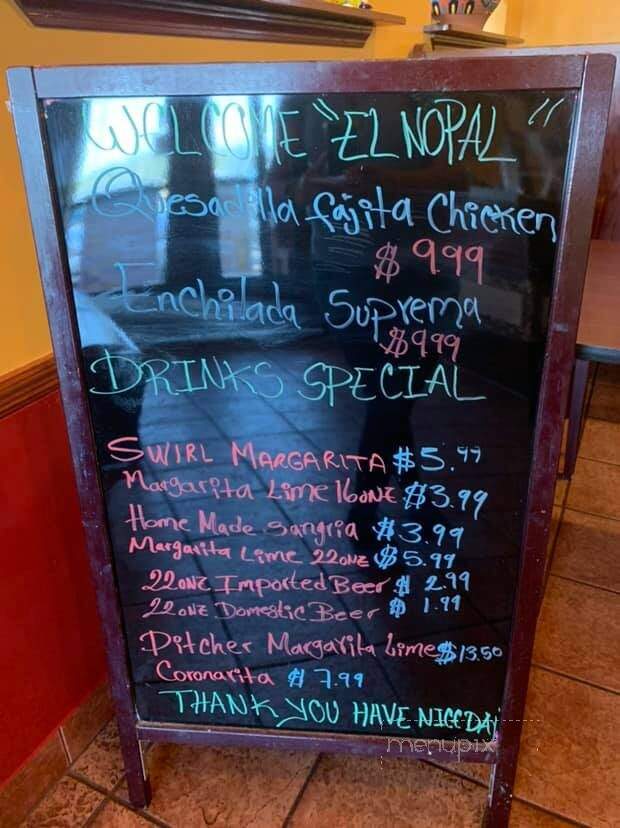 WELCOME "EL NOPAL"
Quesadilla fajita Chicken
$ 9.99
Enchilada Suprema
$9.99
DRINKS SPECIAL
SWIRL MARGARITA $5.99
Margarita Lime 16onz $3.99
Home Made Sangria $3.99
Margarita Lime 22onz $5.99
22onz Imported Beer $ 2.99
22onz Domestic Beer $ 1.99
Pitcher Margarita Lime $13.50
Coronarita $ 7.99
THANK YOU HAVE NICE DAY
menupix